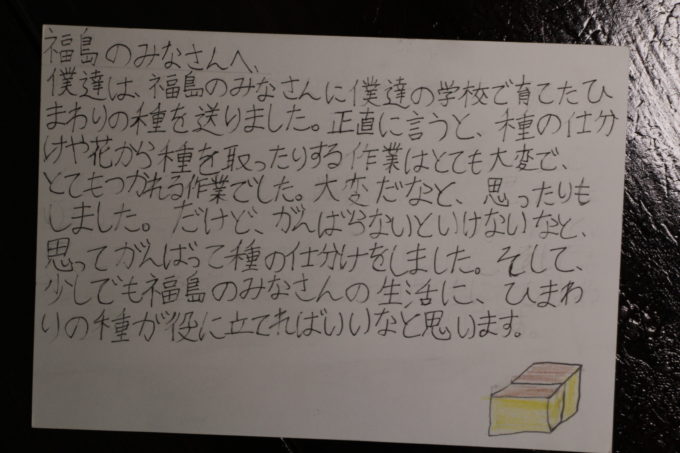 福島のみなさんへ、
僕達は、福島のみなさんに僕達の学校で育てたひ
まわりの種を送りました。正直に言うと、種の仕分
けや花から種を取ったりする作業はとても大変で、
とてもつかれる作業でした。大変だなと、思ったりも
しました。だけど、がんばらないといけないなと、
思ってがんばって種の仕分けをしました。そして、
少しでも福島のみなさんの生活に、ひまわ
りの種が役に立てればいいなと思います。